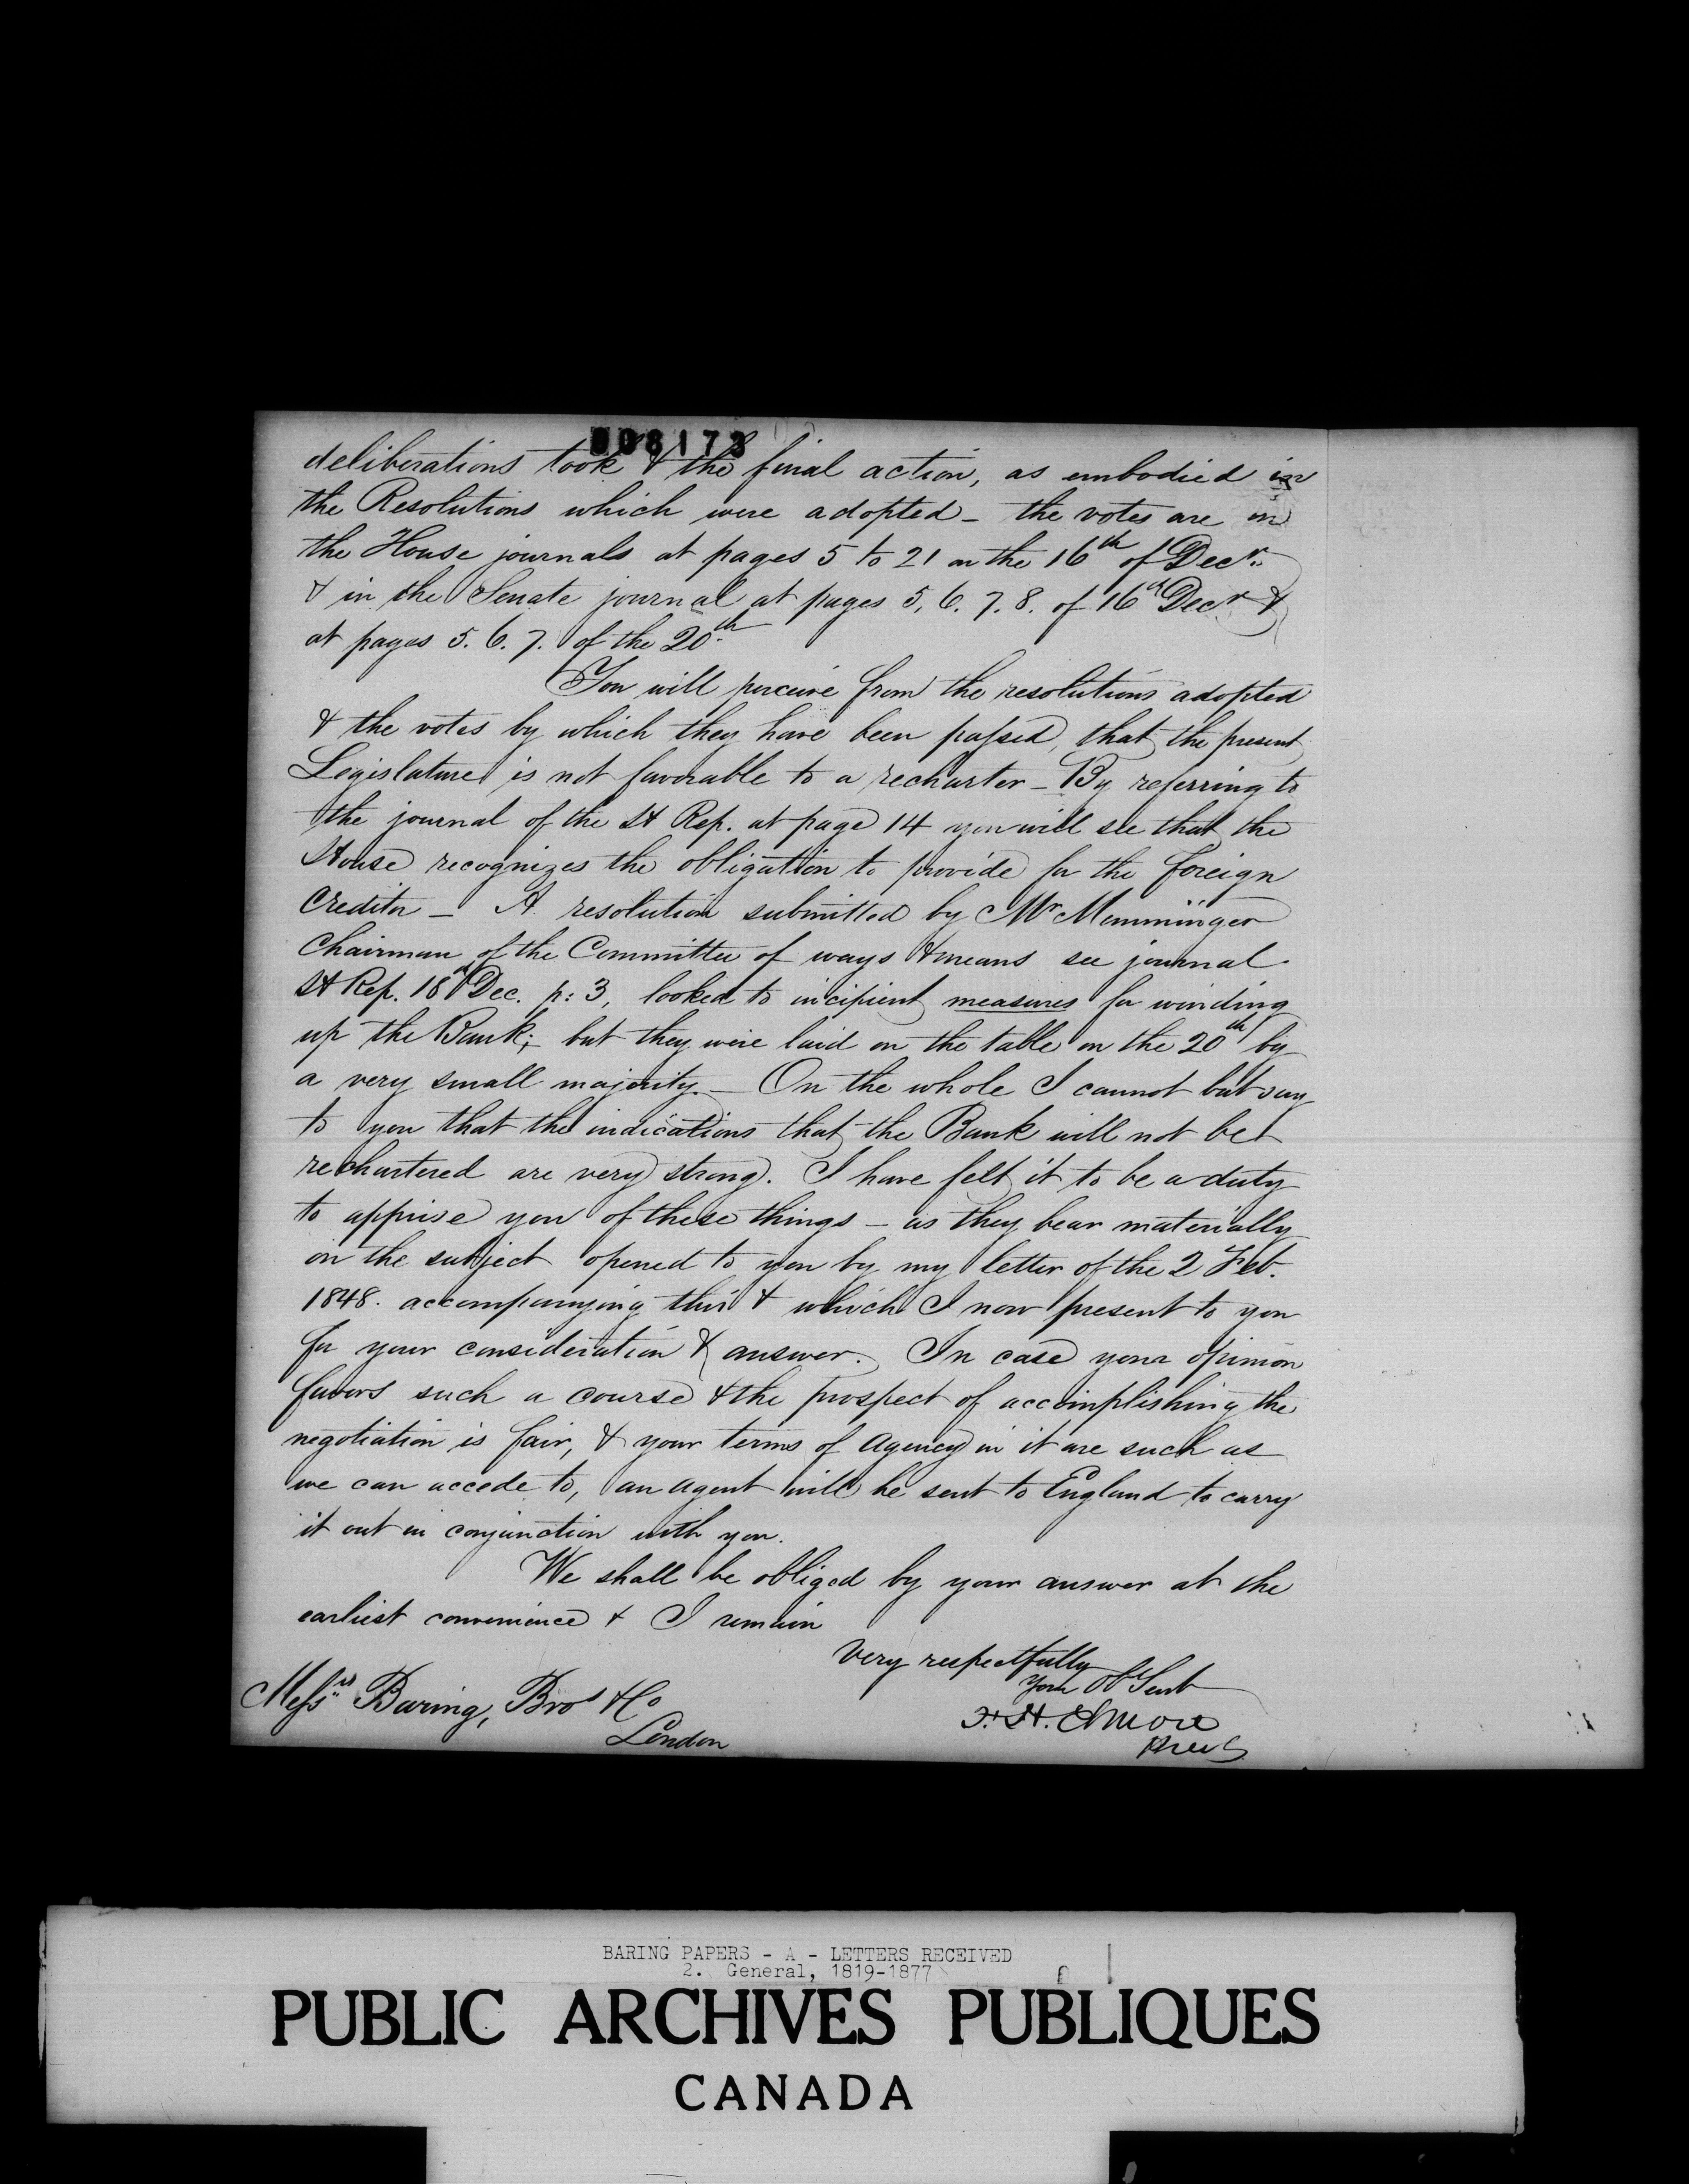 008173
deliberations took & the final action, as embodied in
the Resolutions which were adopted - the votes are in
the House journals at pages 5 to 21 on the 16th of Decr.
& in the Senate journal at pages 5, 6. 7. 8. of 16th Decr &
at pages 5. 6. 7. of the 20th
You will perceive from the resolutions adopted
& the votes by which they have been passed, that the present
Legislature is not favorable to a recharter - By referring to
the journal of the H Rep. at page 14 you will see that the
House recognizes the obligation to provide for the foreign
Creditor - A resolution submitted by Mr Memminger
Chairman of the Committee of ways & means see journal
H Rep. 18th Dec. p: 3, looked to incipient measures for winding
up the Bank; but they were laid on the table on the 20th by
a very small majority. - On the whole I cannot but say
to you that the indications that the Bank will not be
rechartered are very strong. I have felt it to be a duty
to apprise you of these things - as they bear materially
on the subject opened to you by my letter of the 2 Feb.
1848. accompanying this & which I now present to you
for your consideration & answer. In case your opinion
favors such a course & the prospect of accomplishing the
negotiation is fair, & your terms of Agency in it are such as
we can accede to, an agent will be sent to England to carry
it out in conjunction with you.
We shall be obliged by your answer at the
earliest convenience & I remain
Very respectfully
Your Ob Servt
F. H. Elmore
Prest
Messrs Baring, Bros & Co
London
BARING PAPERS - A - LETTERS RECEIVED
2. General, 1819-1877
PUBLIC ARCHIVES PUBLIQUES
CANADA